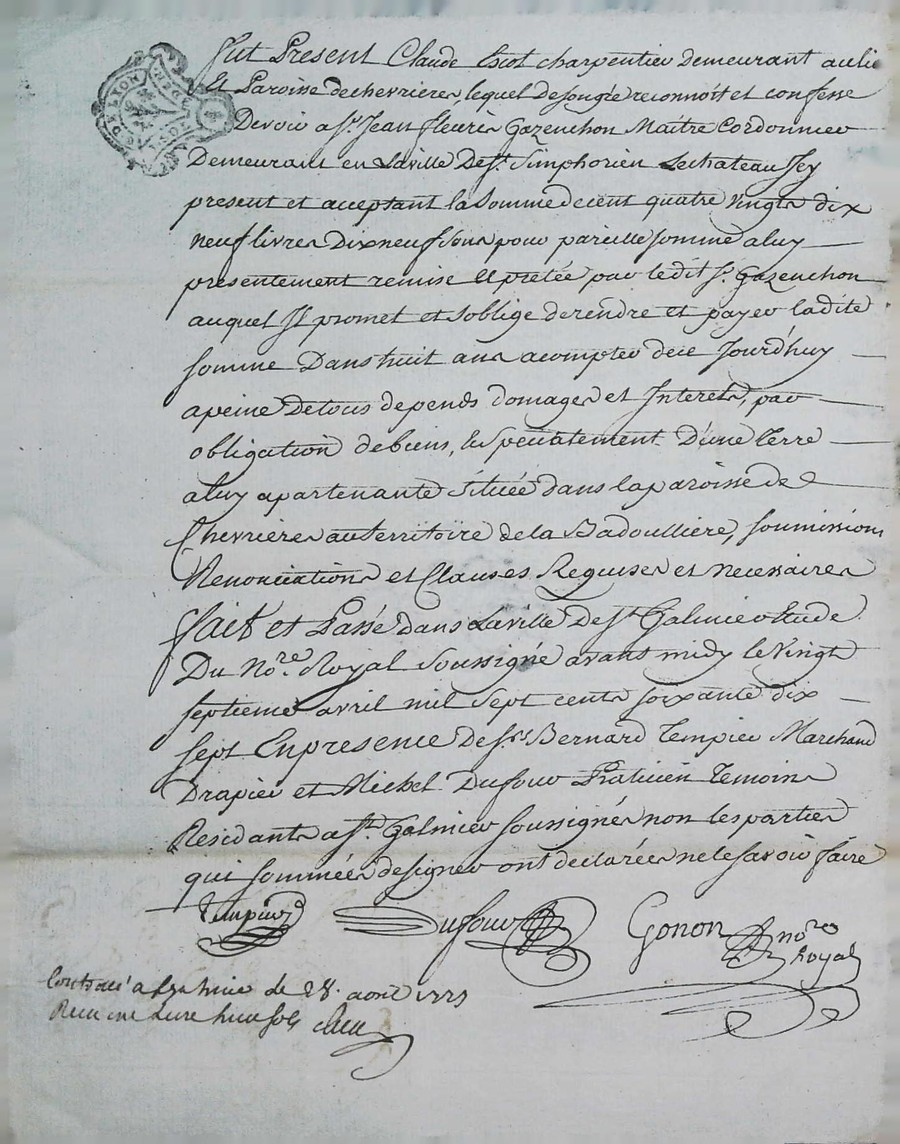 Fut Present Claude Escot charpentier Demeurant au lie
Et Paroisse de chevrieres, lequel de son gré reconnoit et confesse
Devoir a Sr. Jean fleuris Gazenchon Maitre Cordonnier
Demeurant en La ville De St. Simphorien Le chateau Jcy
present et acceptant la Somme de cent quatre vingts dix
neuf livres Dix neuf Sous pour pareille somme a luy
presentement remise Et pretée par le dit Sr. Gazenchon
auquel Jl promet et s'oblige de rendre et payer la dite
somme Dans huit ans a compter de ce Jourd'huy
a peine De tous depends domages et Interets, par
obligation de biens, et Specialement D'une Terre
a luy apartenante Sitüée dans la paroisse de
Chevrieres au territoire de la Badoulliere, Soumissions
Renonciations et Clauses Requises et necessaires
fait et Passé dans La ville De St. Galmier Etude
Du Nore. Royal Soussigné avant midy le Vingt
septieme avril mil Sept cents soixante dix
sept En presence De Srs. Bernard Tempier Marchand
Drapier et Michel Dufour Praticien Temoins
Residants a St. Galmier soussignés non les parties
qui sommées de signer ont declarées ne le savoir faire
Tempier Dufour Gonon nore
Royal
Controlé a St galmier le 28. avril 1777
Recu une livre huit sols
DE LYON